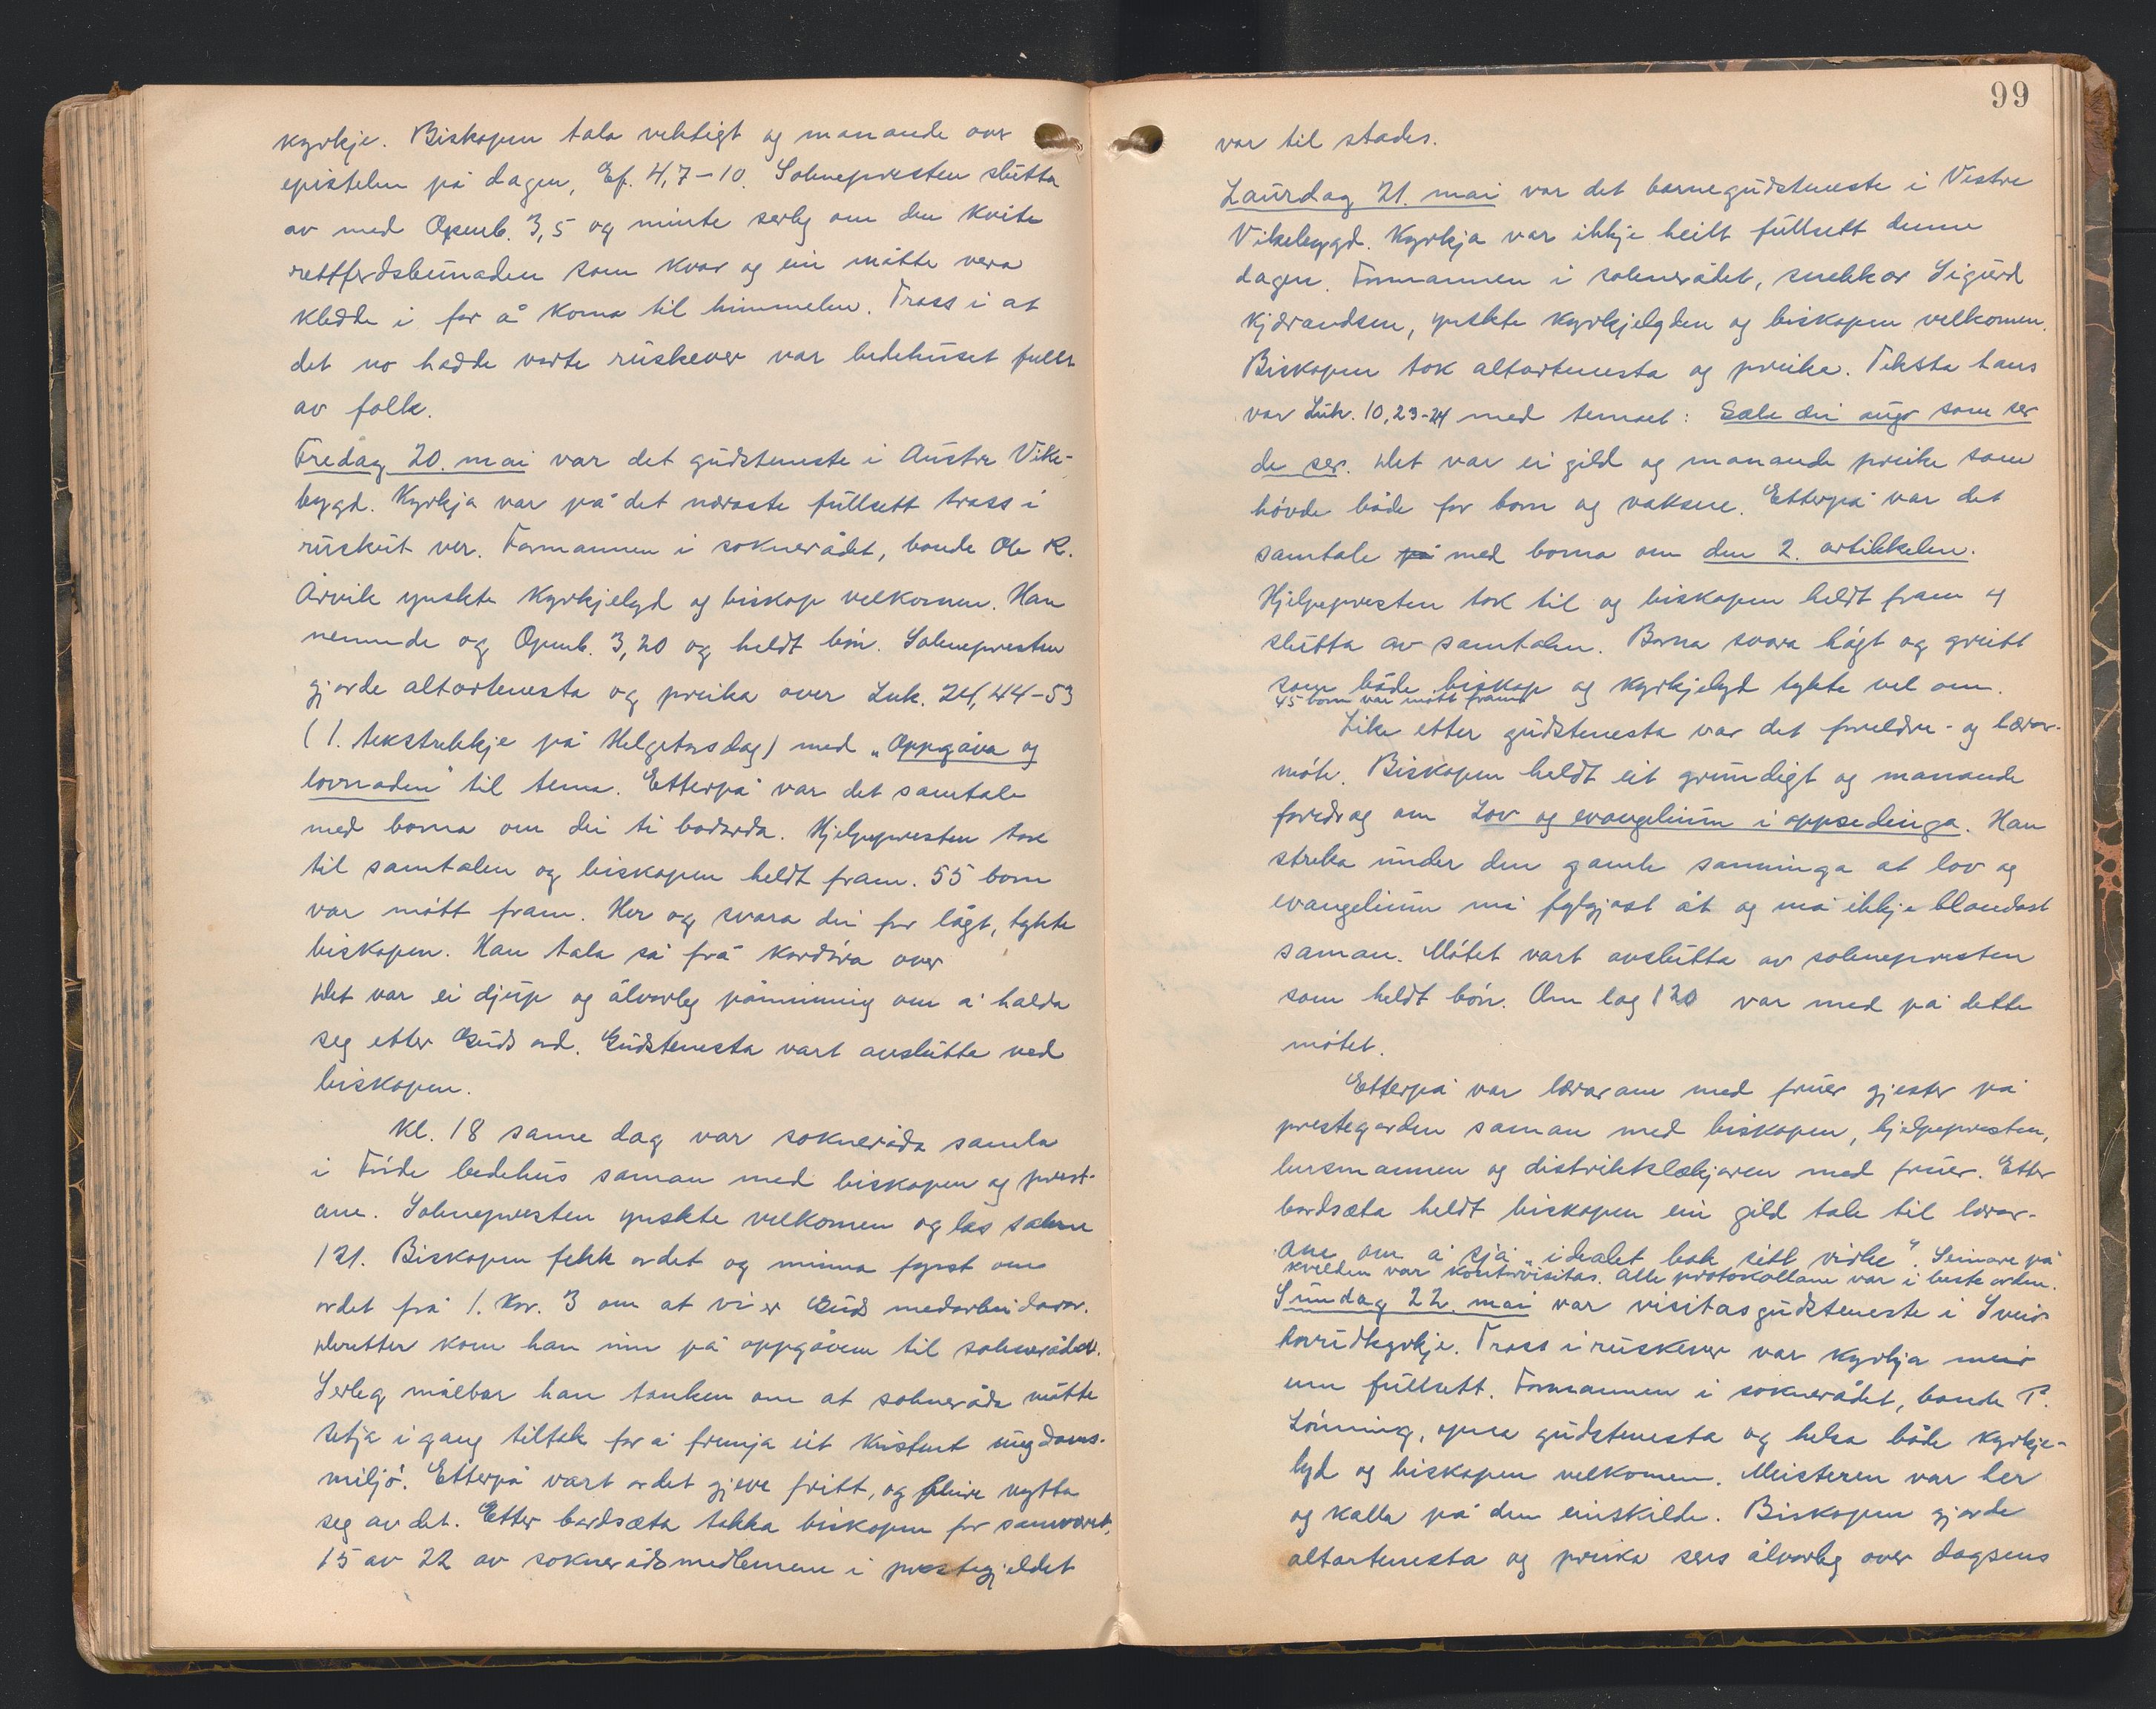 kyrkje. Biskopen tala vektigt og manande over
epistelen på dagen, Ef. 4,7-10. Soknepresten slutta
av med Openb. 3,5 og minte serleg om den kvite
rettferdsbunaden som kvar og ein måtte vera
kledde i for å koma til himmelen. Trass i at
det no hadde vorte ruskever var bedehuset fullt
av folk.
Fredag 20. mai var det gudsteneste i Austre Vike-
bygd. Kyrkja var på det næraste fullsett trass i
ruskut ver. Formannen i soknerådet, bonde Ole R.
Årvik ynskte kyrkjelyd og biskop velkomen. Han
nemnde og Openb. 3,20 og heldt bøn. Soknepresten
gjorde altartenesta og preika over Luk. 24,44-53
(1. tekstrekkje på Helgetorsdag) med „Oppgåva og
lovnaden" til tema. Etterpå var det samtale
med borna om dei ti bodorda. Hjelpepresten tok
til samtalen og biskopen heldt fram. 55 born
var møtt fram. Her og svara dei for lågt, tykte
biskopen. Han tala så frå kordøra over
Det var ei djup og ålvorleg påminning om å halda
seg etter Guds ord. Gudstenesta vart avslutta ved
biskopen.
Kl. 18 same dag var sokneråda samla
i Førde bedehus saman med biskopen og prest-
ane. Soknepresten ynskte velkomen og las salme
121. Biskopen fekk ordet og minna fyrst om
ordet frå 1. Kor. 3 om at vi er Guds medarbeidarar.
Deretter kom han inn på oppgåvene til sokneråda.
Serleg målbar han tanken om at sokneråda måtte
setja i gang tiltak for å fremja eit kristent ungdoms-
miljø. Etterpå vart ordet gjeve fritt, og fleire nytta
seg av det. Etter bordsæta takka biskopen for samværet.
15 av 22 av soknerådsmedlemene i prestegjeldet
99
var til stades.
Laurdag 21. mai var det barnegudsteneste i Vestre
Vikebygd. Kyrkja var ikkje heilt fullsett denne
dagen. Formannen i soknerådet, snekkar Sigurd
Kjærandsen, ynskte kyrkjelyden og biskopen velkomen.
Biskopen tok altartenesta og preika. Teksta hans
var Luk. 10,23-24 med temaet: Sæle dei augo som ser
de ser. Det var ei gild og manande preike som
høvde både for born og vaksne. Etterpå var det
samtale på med borna om den 2. artikkelen.
Hjelpepresten tok til og biskopen heldt fram og
slutta av samtalen. Borna svara høgt og greitt
som både biskop og kyrkjelyd tykte vel om.
45 born var møtt fram.
Like etter gudstenesta var det foreldre- og lærar-
møte. Biskopen heldt eit grundigt og manande
foredrag om Lov og evangelium i oppsedinga. Han
streka under den gamle sanninga at lov og
evangelium må fylgjast åt og må ikkje blandast
saman. Møtet vart avslutta av soknepresten
som heldt bøn. Om lag 120 var med på dette
møtet.
Etterpå var lærarane med fruer gjester på
prestegarden saman med biskopen, hjelpepresten,
lensmannen og distriktslækjaren med fruer. Etter
bordsæta heldt biskopen ein gild tale til lærar-
ane om å sjå „idealet bak sitt virke". Seinare på
kvelden var kontorvisitas. Alle protokollane var i beste orden.
Sundag 22. mai var visitasgudsteneste i Sveio
hovudkyrkje. Trass i ruskever var kyrkja meir
enn fullsett. Formannen i soknerådet, bonde P.
Lønning, opna gudstenesta og helsa både kyrkje-
lyd og biskopen velkomen. Meisteren var her
og kalla på den einskilde. Biskopen gjorde
altartenesta og preika sers ålvorleg over dagsens